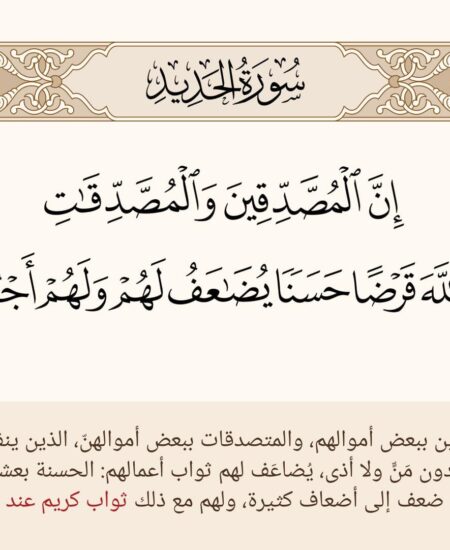 سُورَةُ الحَدِيدِ
إِنَّ ٱلْمُصَّدِّقِينَ وَٱلْمُصَّدِّقَٰتِ
قَرْضًا حَسَنًا يُضَٰعَفُ لَهُمْ وَلَهُمْ
ببعض أموالهم، والمتصدقات ببعض أموالهنّ، الذين
مَنٍّ ولا أذى، يُضاعَف لهم ثواب أعمالهم: الحسنة
ضعف إلى أضعاف كثيرة، ولهم مع ذلك ثواب كريم عند